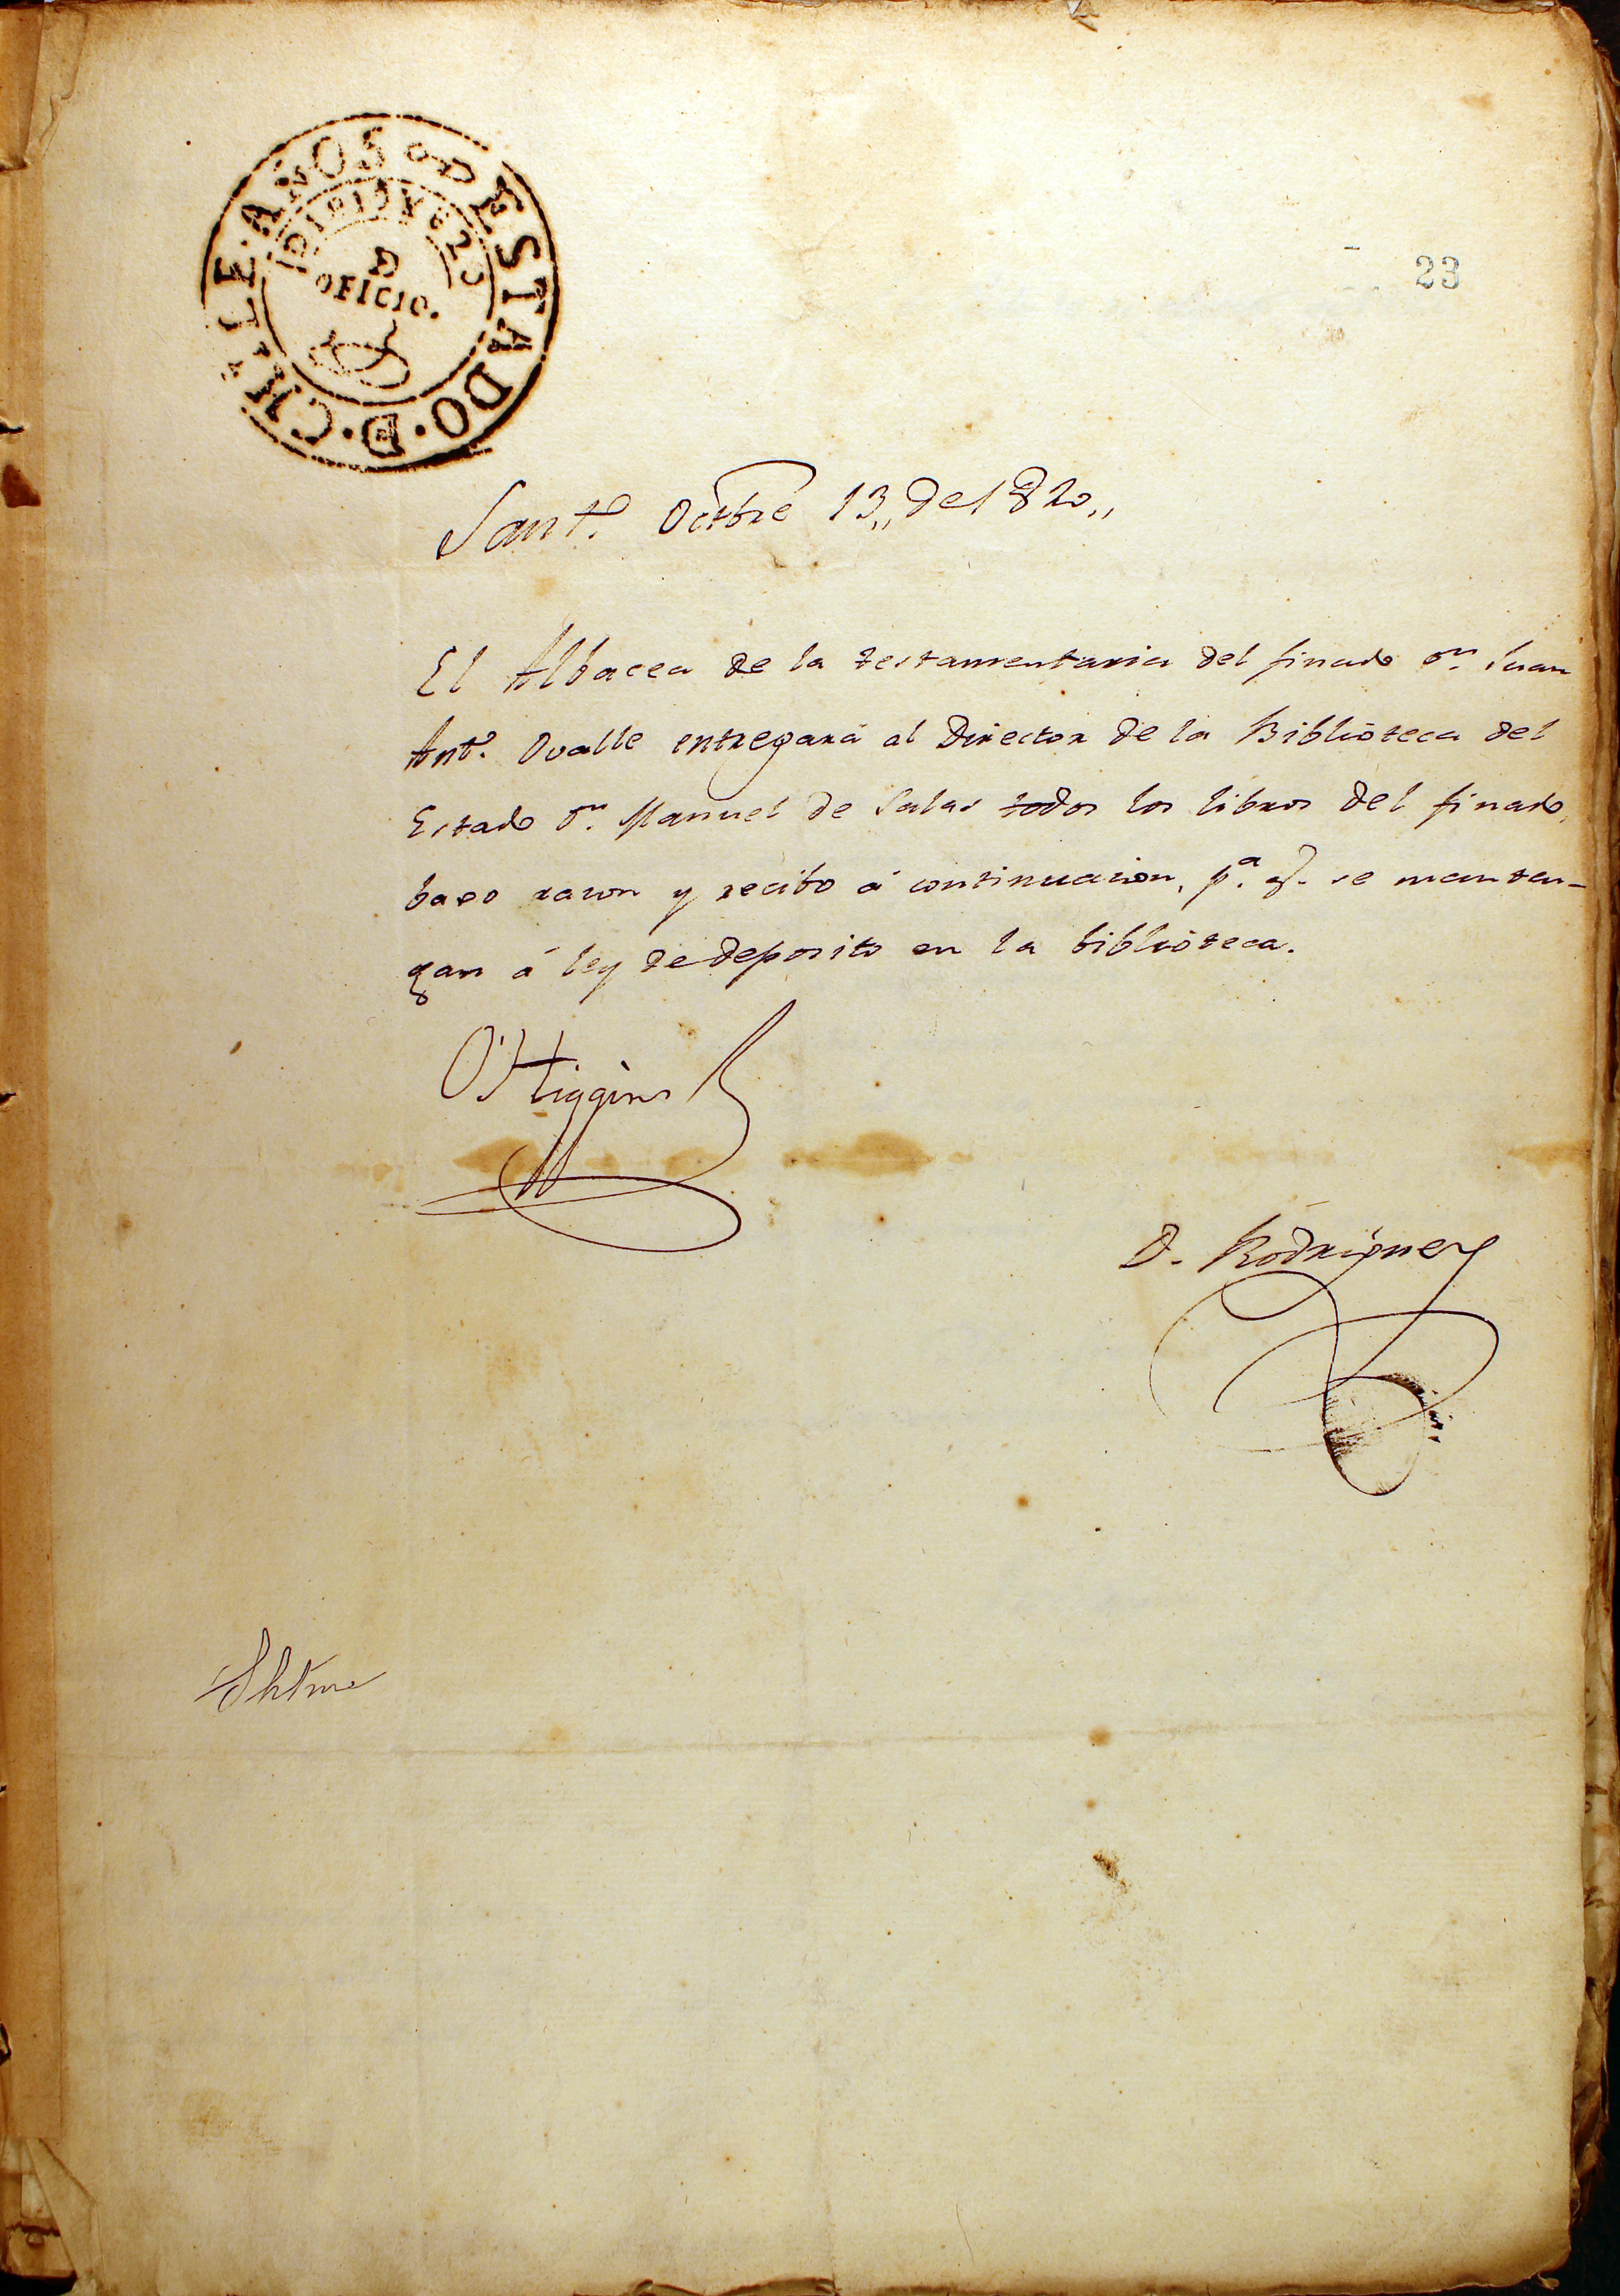 ESTADO · D · CHILE · AÑOS · D
D 19 Y 820
D
OFICIO.
23
Sant.º Octbre 13,, de 1820,,
El Albacea de la testamentaria del finado Dn. Juan
Antº. Ovalle entregará al Director de la Biblioteca del
Estado Dn. Manuel de Salas todos los libros del finado,
baxo razon y recibo á continuacion, pª. q. se manten-
gan á ley de deposito en la biblioteca.
O'Higgins
D. Rodriguez